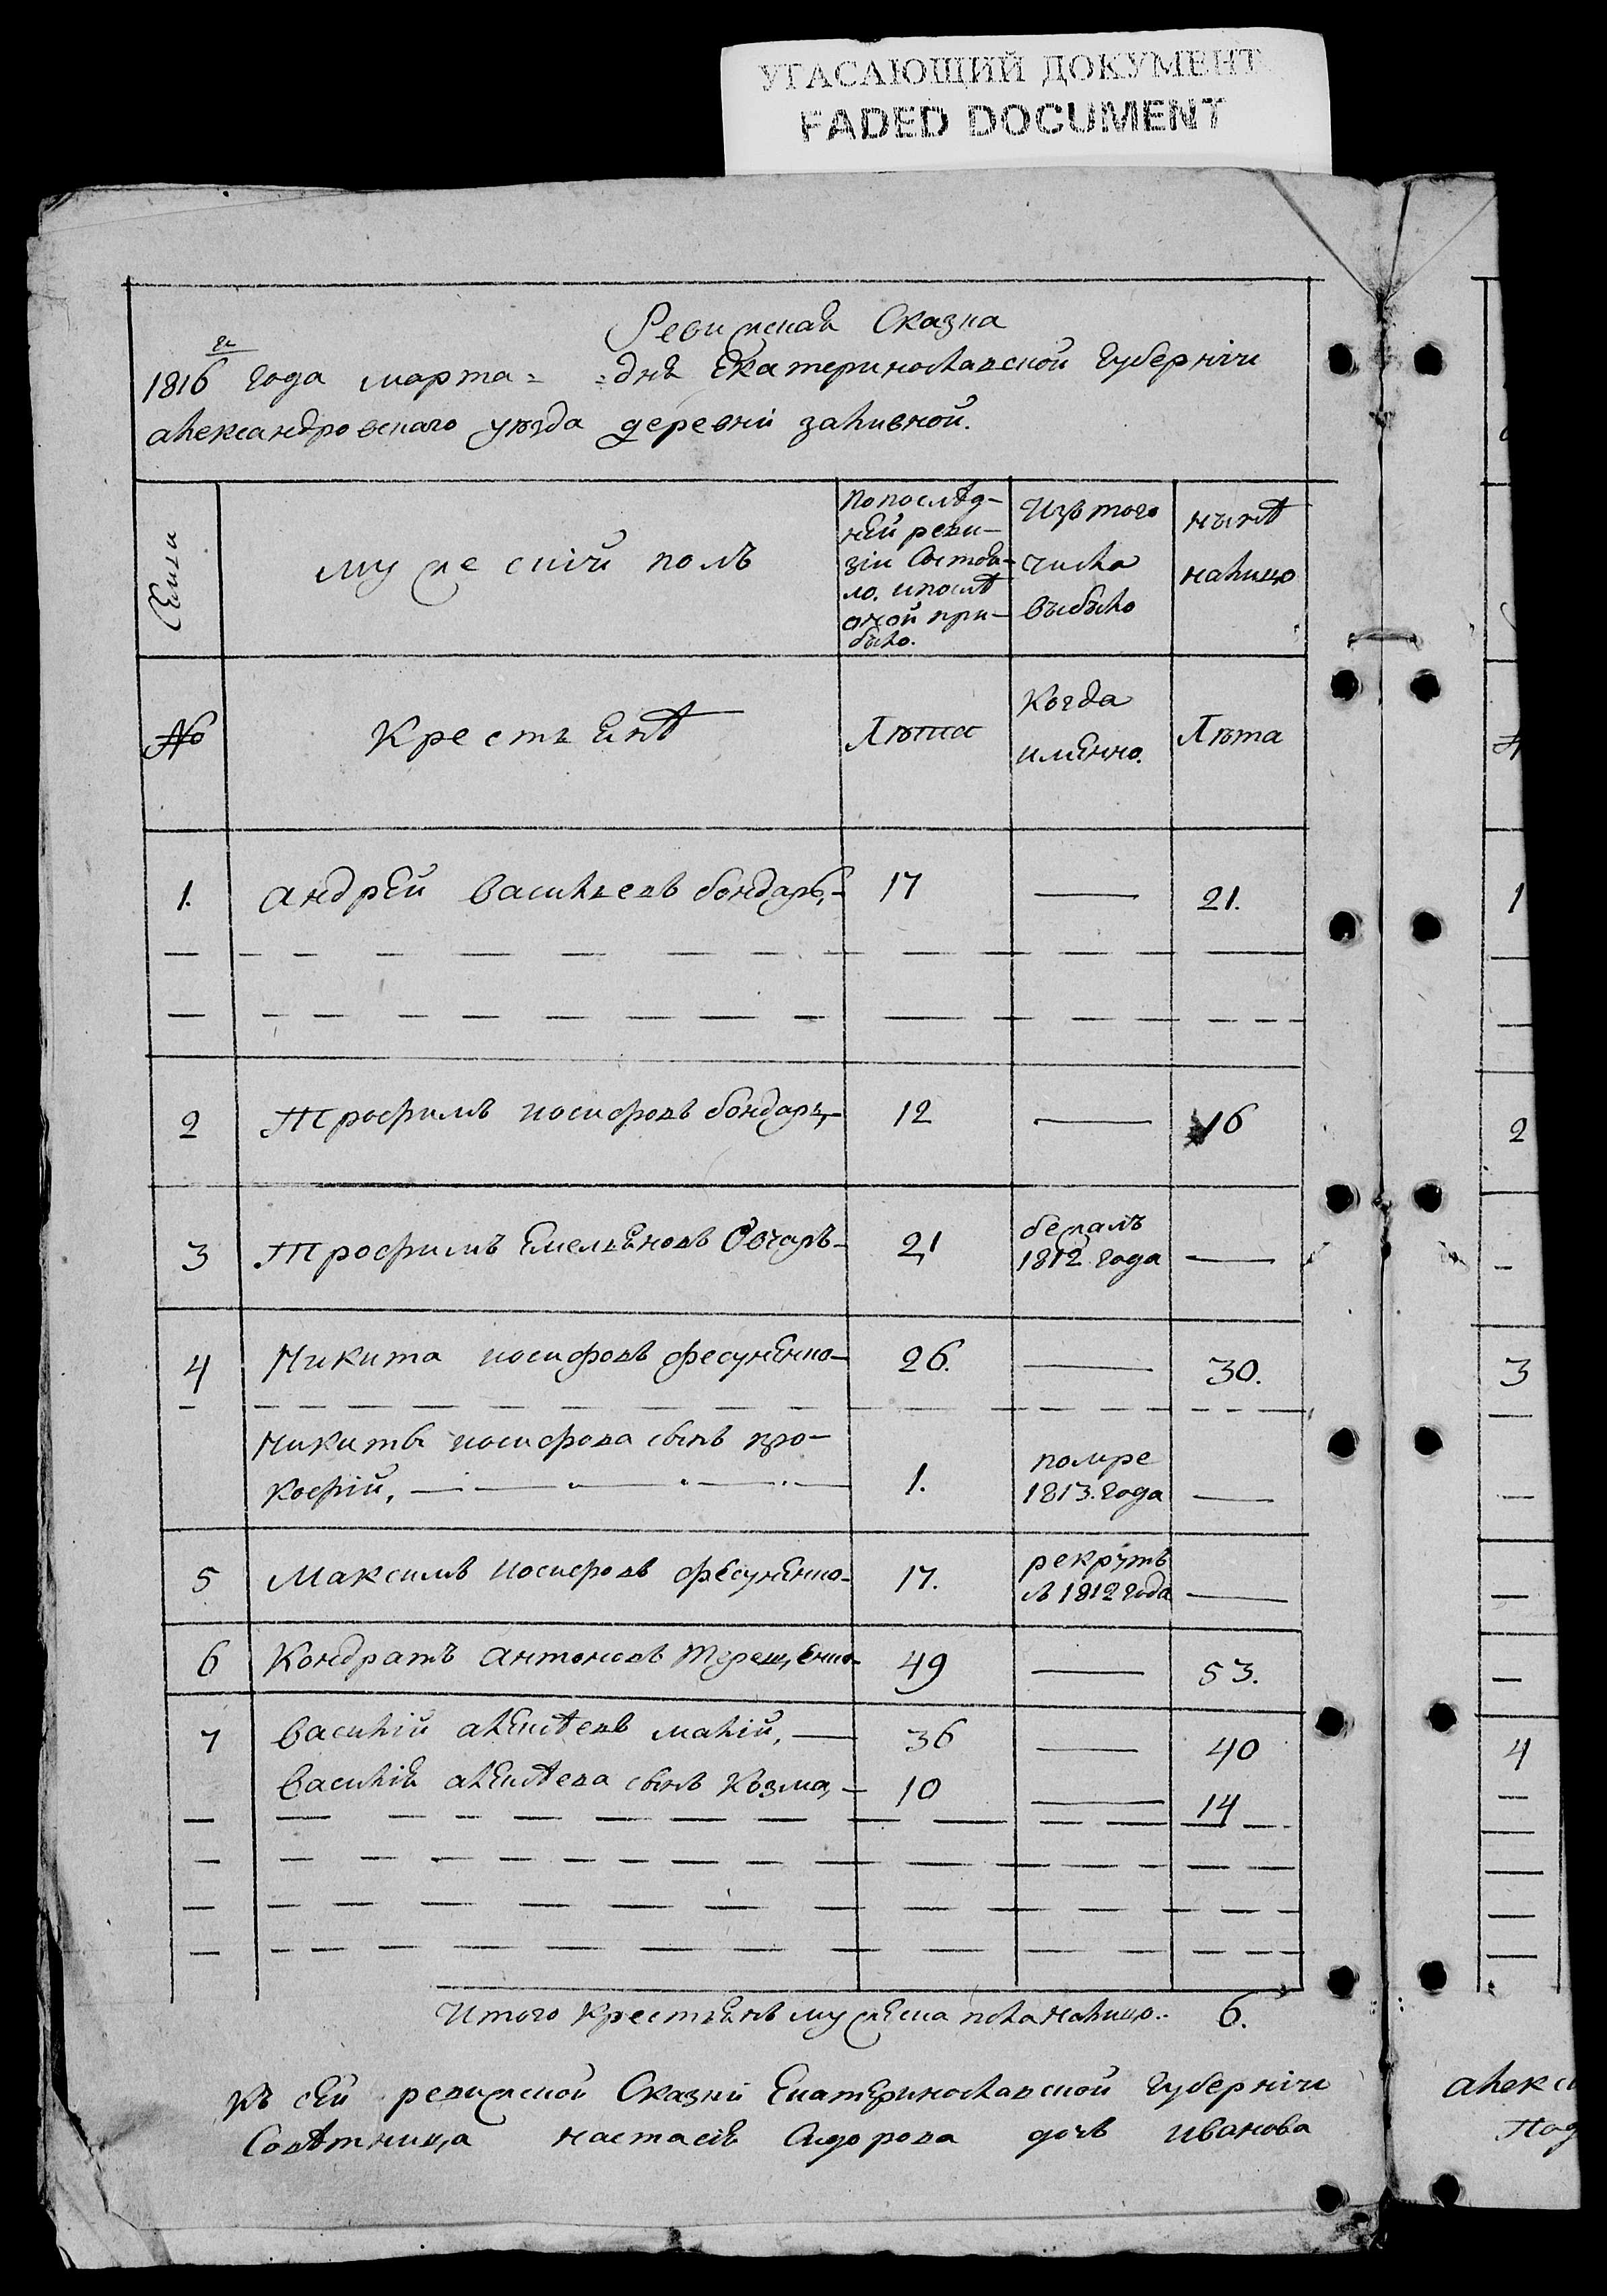 УГАСАЮЩИЙ ДОКУМЕНТ
FADED DOCUMENT
Ревижская Сказка
1816 го года марта = = дня Екатеринославской губерніи
александровскаго уѣзда деревни заливной.
Семьи
мужескій полъ
по послѣд-
ней реви-
зіи состоя-
ло. и послѣ
оной при-
было.
Изъ того
числа
выбыло
нынѣ
налицо
№
Крестьянѣ
Лѣта
Когда
имянно.
Лѣта
1. андрей васильевъ бондарь,- 17 — 21.
2 Трофимъ иосифовъ бондарь,- 12 — 16
3 Трофимъ Емельяновъ Овчаръ- 21 бежалъ 1812 года —
4 Никита иосифовъ фесуненко- 26. — 30.
Никиты иосифова сынъ про-
кофій, 1. помре 1813. года —
5 Максимъ иосифовъ фесуненко- 17. рекрутъ в 1812 года —
6 Кондратъ антоновъ терещенко- 49 — 53.
7 василій алексѣевъ малій, — 36 — 40
василія алексѣева сынъ Козма, - 10 — 14
Итого крестьянъ мужеска пола налицо.. 6.
Къ сей ревижской Сказки Екатеринославской губерніи
Совѣтница настасія Сидорова дочь иванова
1
2
3
4
алекс
Под